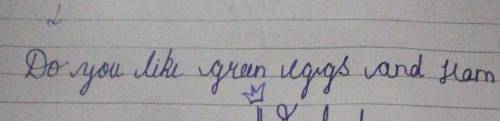 Do you like green eggs and Ham